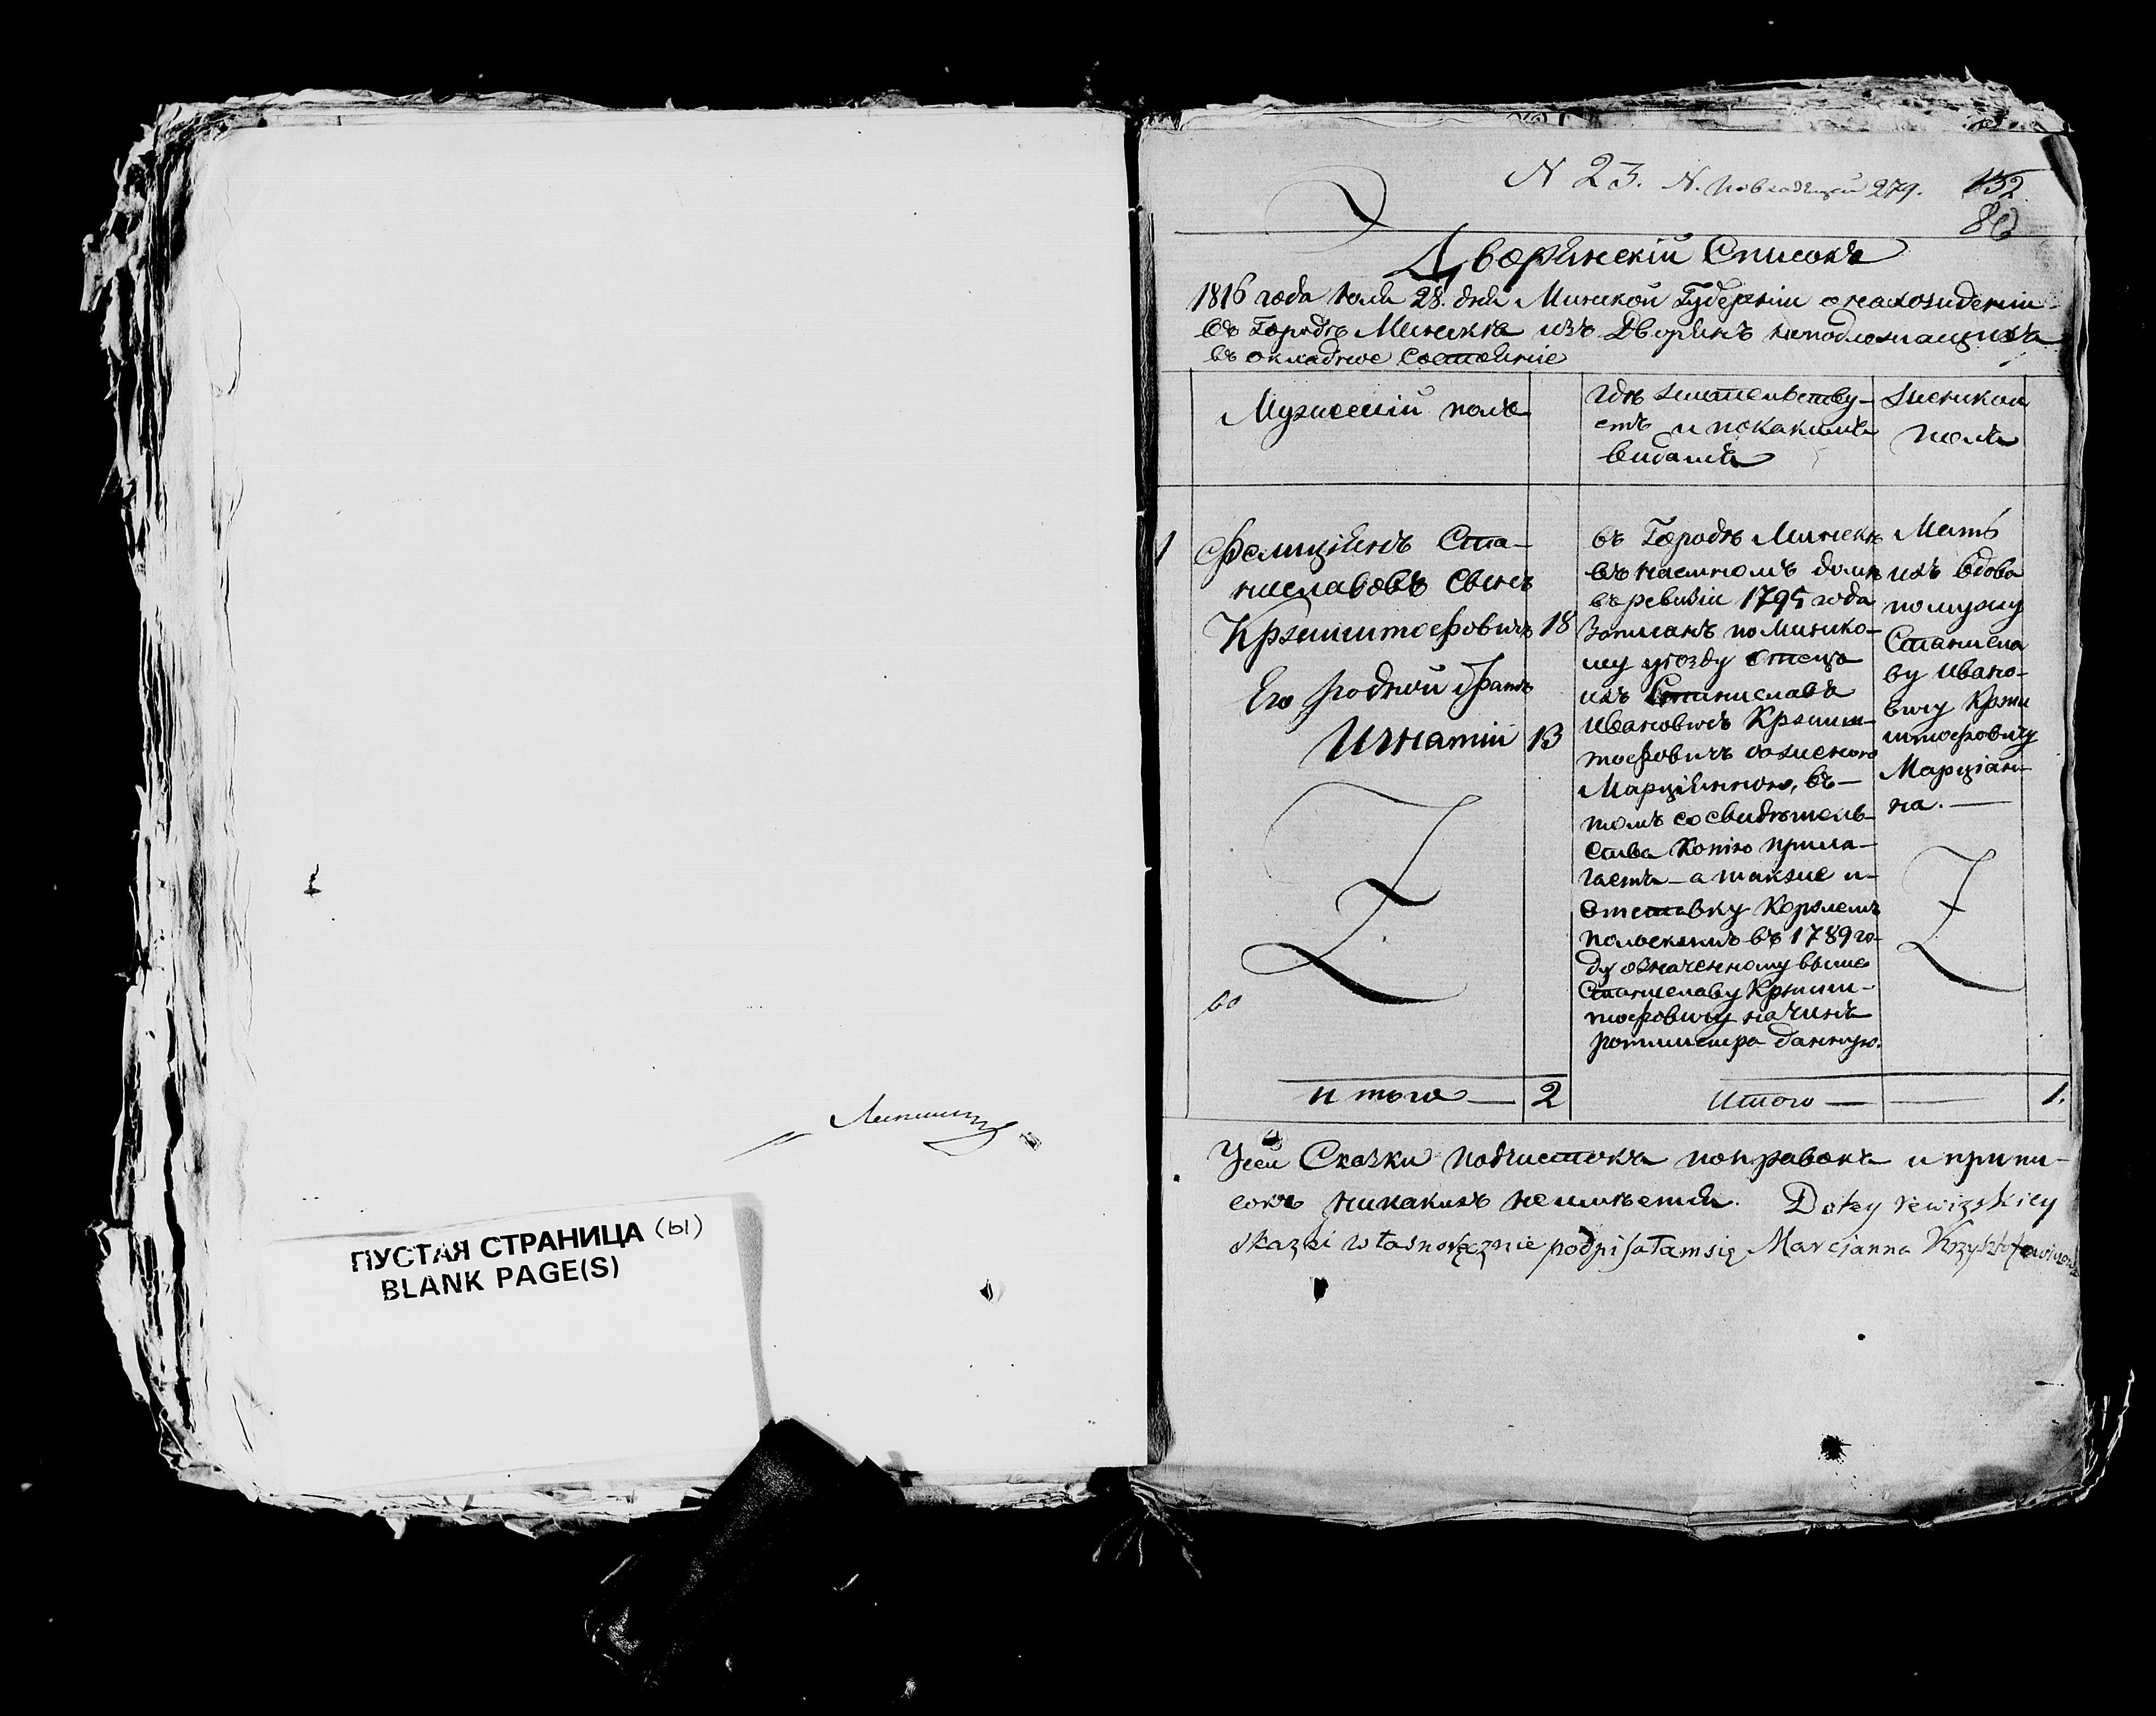 Липинск
ПУСТАЯ СТРАНИЦА (Ы)
BLANK PAGE(S)
N 23. N. 279. 132
86
Дворянскій Списокъ
1816 года Іюля 28. дня Минской Губерніи о нахожденіи
въ Городѣ Минскѣ изъ Дворянъ неподлежащихъ
въ окладное состояніе
Мужескій полъ
гдѣ жительству-
етъ и покакимъ
видамъ
Женскои
полъ
1
Фелиціянъ Ста-
ниславовъ Сынъ
Крзыштофовичъ 18
Его родной братъ
Игнатій 13
въ Городѣ Минскѣ
въ наемномъ домѣ
въ ревизіи 1795 года
Записанъ по Минско-
му уѣзду отецъ
ихъ Станиславъ
Ивановичъ Крзыш-
тофовичъ сженою
Марціянною, въ
томъ сосвидѣтель-
ства Копію прила-
гаетъ а также и
отставку Королемъ
польскимъ въ 1789 го-
ду означенному выше
Станиславу Крзыш-
тофовичу на чинъ
ротмистра данную.
Мать
ихъ вдова
помужу
Станисла
ву Ивано-
вичу Крзы
штофовичу
Марціан-
на.
60
Итого 2
Итого 1.
Усей Сказки подчистокъ поправокъ и припи-
сокъ никакихъ неимѣется. Do tey rewizskiey
skazki własnoręcznie podpisałam się Marcjanna Krzysztofowiczowa